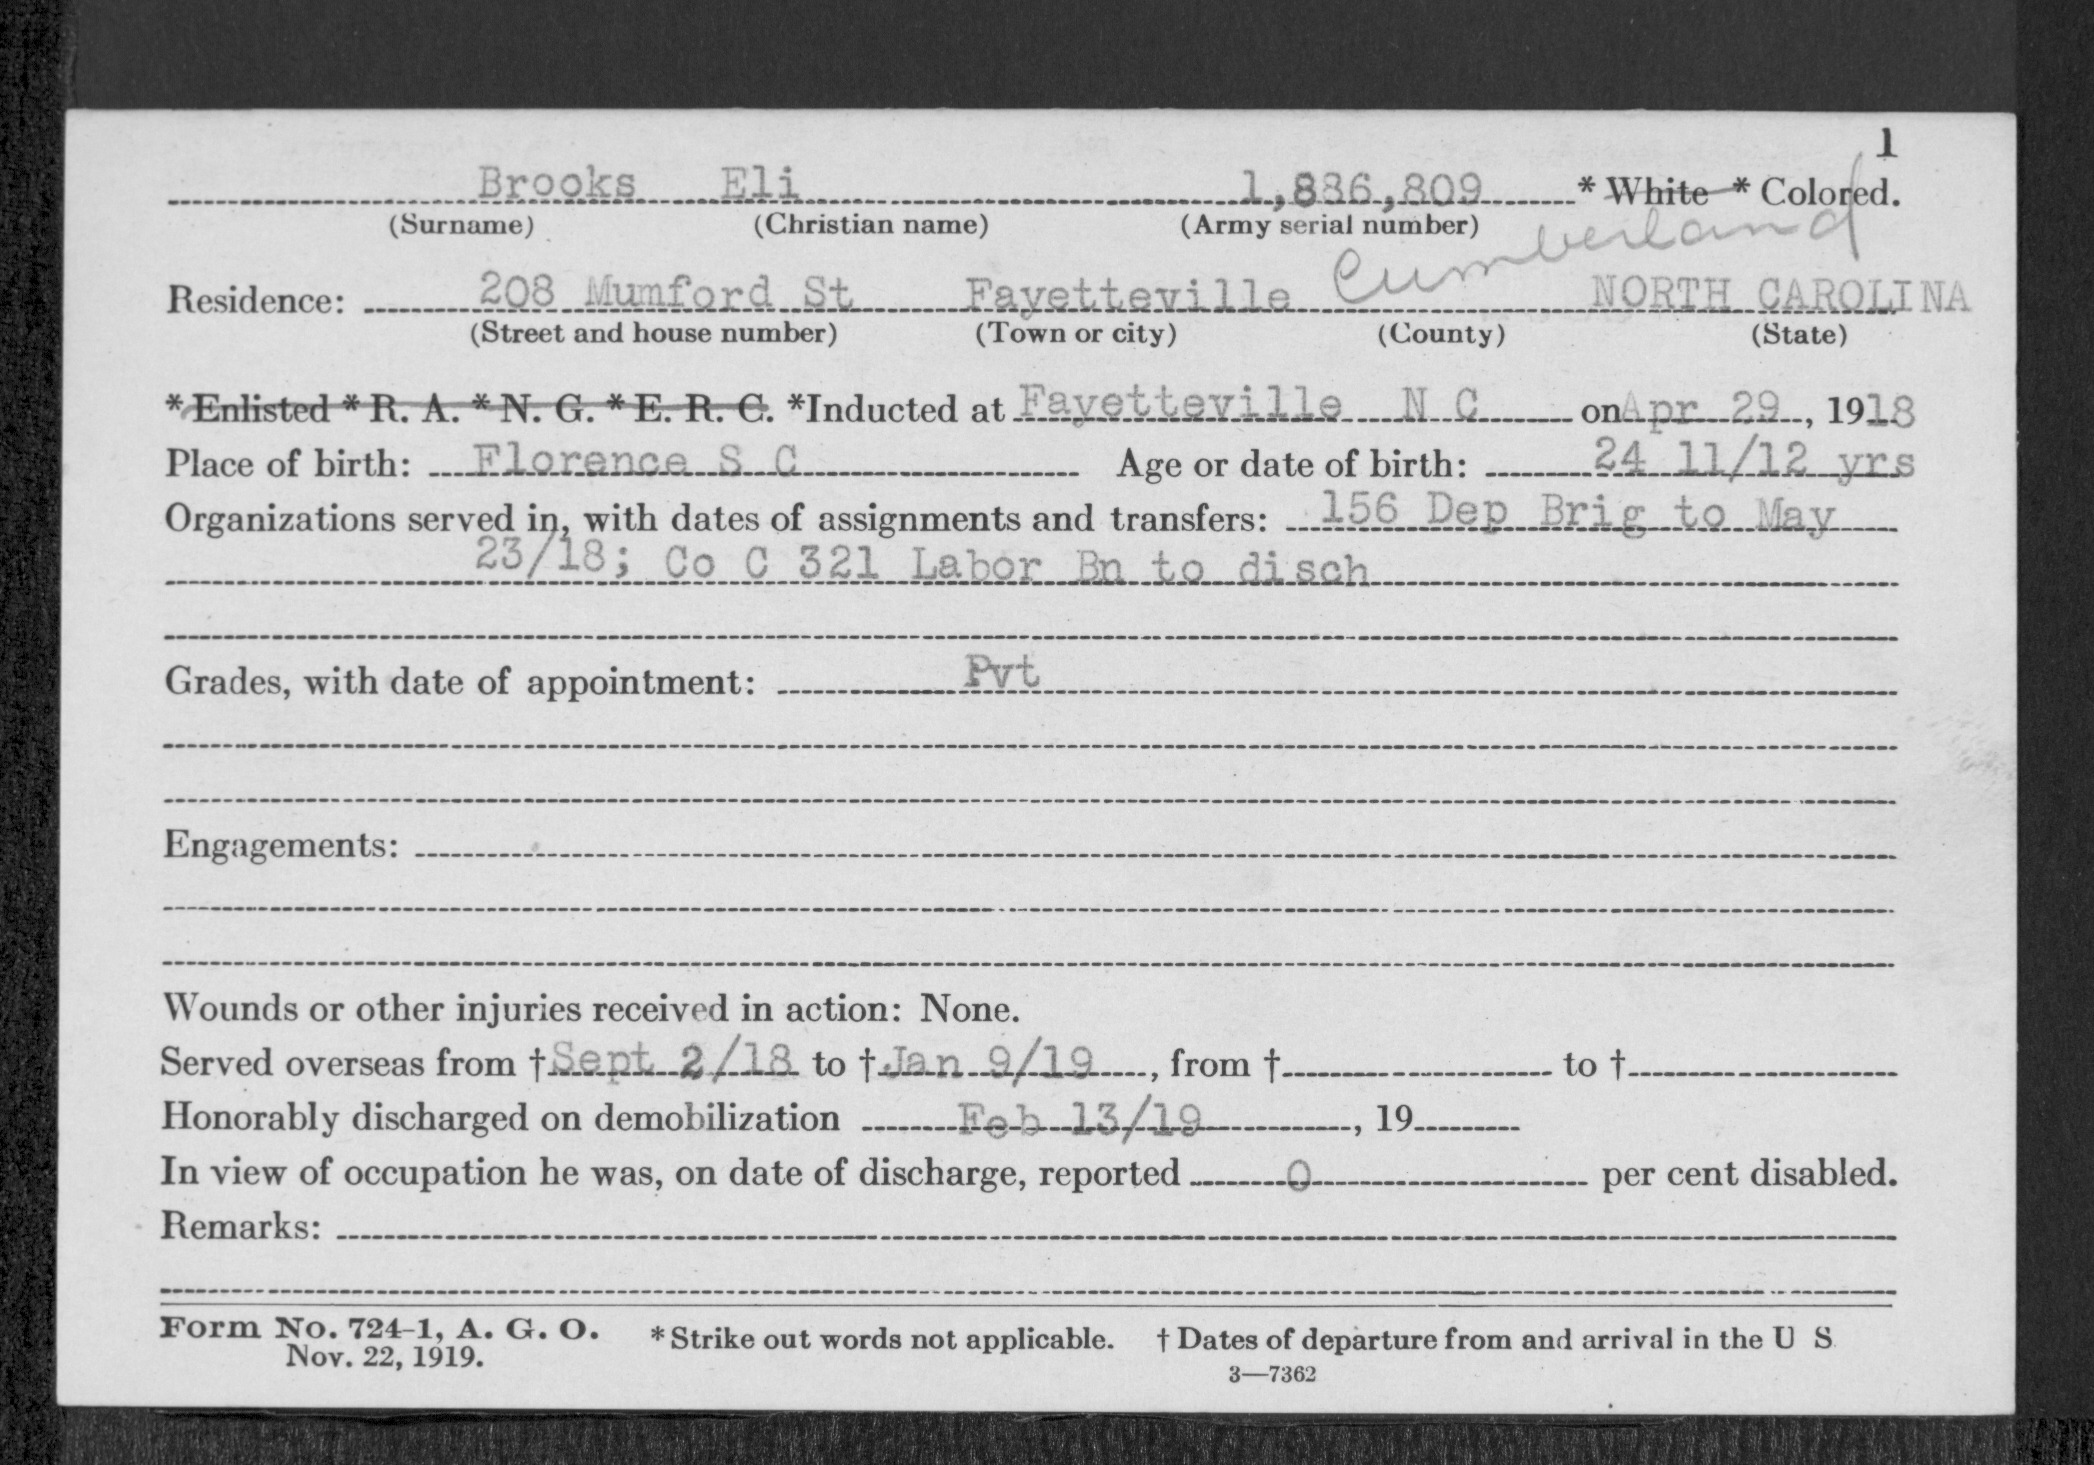 1
Brooks Eli 1,886,809 * White * Colored.
(Surname) (Christian name) (Army serial number)
Residence: 208 Mumford St Fayetteville Cumberland NORTH CAROLINA
(Street and house number) (Town or city) (County) (State)
* Enlisted * R. A. * N. G. * E. R. C. *Inducted at Fayetteville N C on Apr 29, 1918
Place of birth: Florence S C Age or date of birth: 24 11/12 yrs
Organizations served in, with dates of assignments and transfers: 156 Dep Brig to May
23/18; Co C 321 Labor Bn to disch
Grades, with date of appointment: Pvt
Engagements:
Wounds or other injuries received in action: None.
Served overseas from † Sept 2/18 to † Jan 9/19, from † to †
Honorably discharged on demobilization Feb 13/19, 19
In view of occupation he was, on date of discharge, reported 0 per cent disabled.
Remarks:
Form No. 724-1, A. G. O. * Strike out words not applicable. † Dates of departure from and arrival in the U S
Nov. 22, 1919.
3—7362